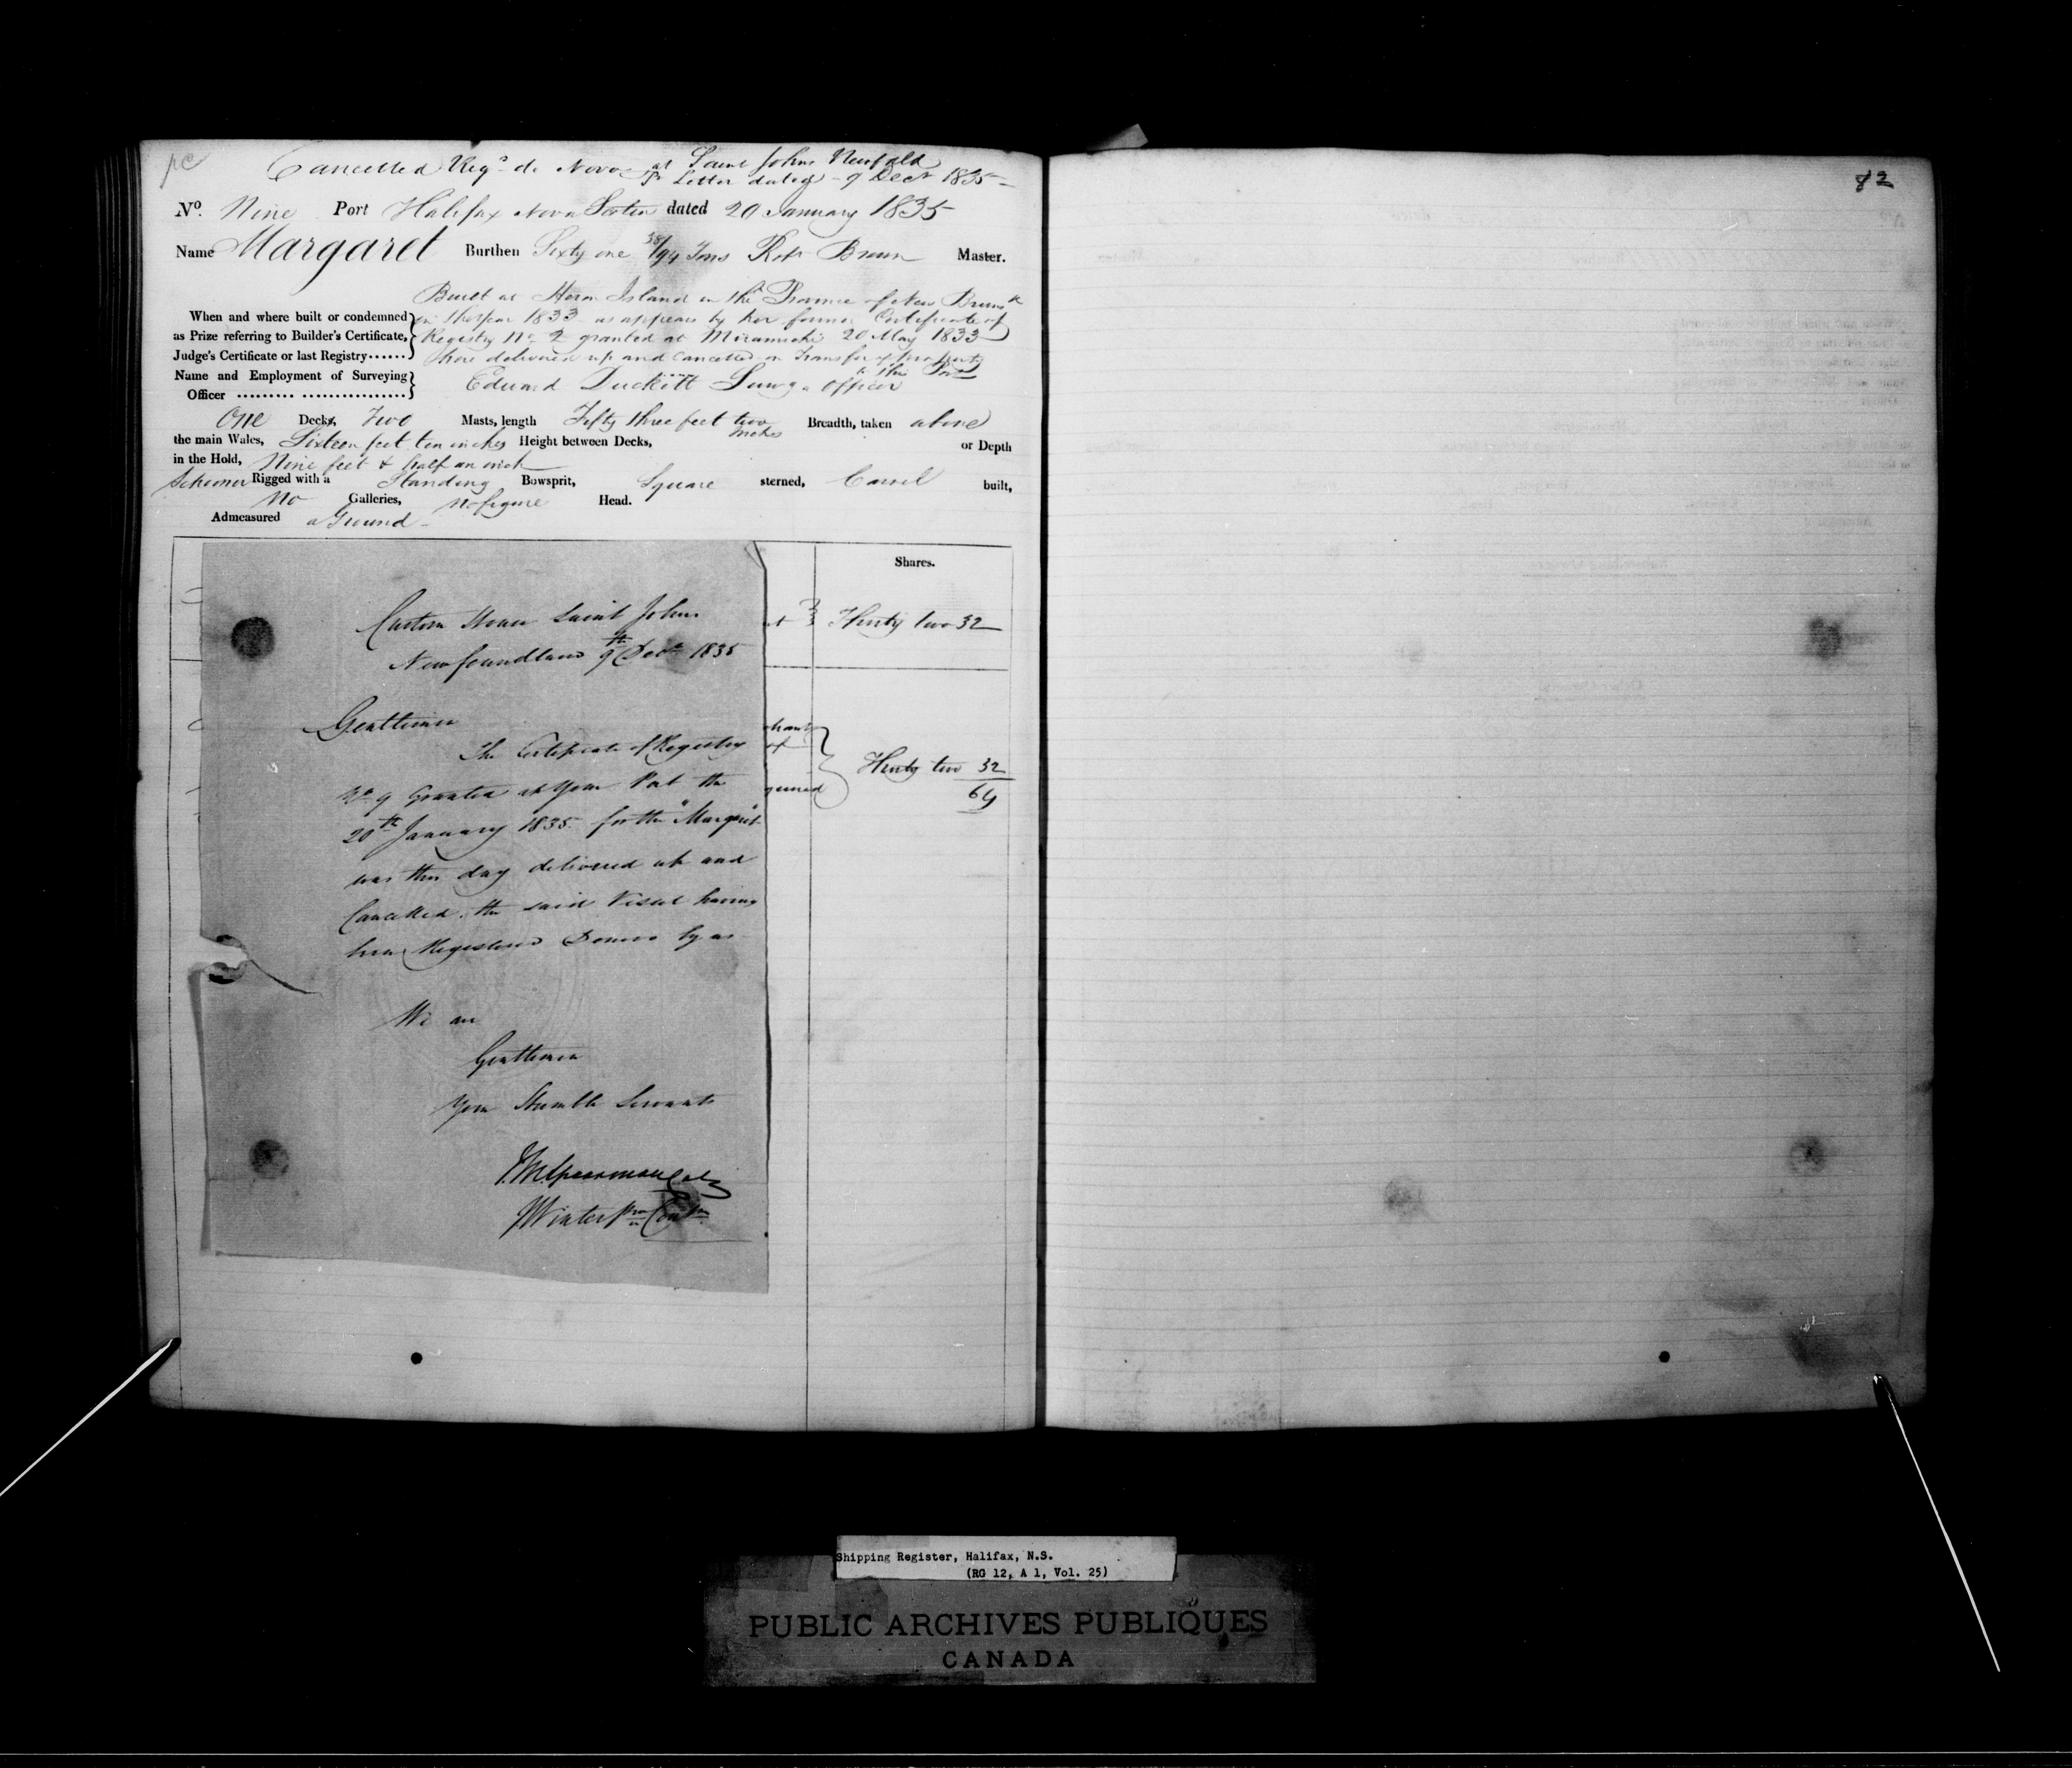 Cancelled Regd de Novo at Saint Johns Newfdld
pr Letter dated 9 Decr 1835
No. Nine Port Halifax Nova Scotia dated 20 January 1835
Name Margaret Burthen Sixty one 38/94 Tons Robt Brown Master.
Built at Heron Island in the Province of New Brunsk
When and where built or condemned in the year 1833 as appears by her former Certificate of
as Prize referring to Builder's Certificate, Registry No 2 granted at Miramichi 20 May 1833
Judge's Certificate or last Registry...... here delivered up and Cancelled on Transfer of property
to this Port
Name and Employment of Surveying
Officer ......... ................. Edward Duckett Survg. Officer
One Decks, Two Masts, length Fifty three feet two inches Breadth, taken above
the main Wales, Sixteen feet ten inches Height between Decks, or Depth
in the Hold, Nine feet & half an inch
Schooner Rigged with a Standing Bowsprit, Square sterned, Carvel built,
No Galleries, no figure Head.
Admeasured a Ground
Shares.
Thirty two 32
Thirty two 32
64
Custom House Saint Johns
Newfoundland 9th Decr 1835
Gentlemen
The Certificate of Registry
No 9 Granted at your Port the
20th January 1835 for the "Margaret"
was this day delivered up and
Cancelled, the said Vessel having
been Registered Denovo by us
We are
Gentlemen
Your Humble Servants
J.M. Spearman Colr
J Winter pro Comr
82
Shipping Register, Halifax, N.S.
(RG 12, A 1, Vol. 25)
PUBLIC ARCHIVES PUBLIQUES
CANADA